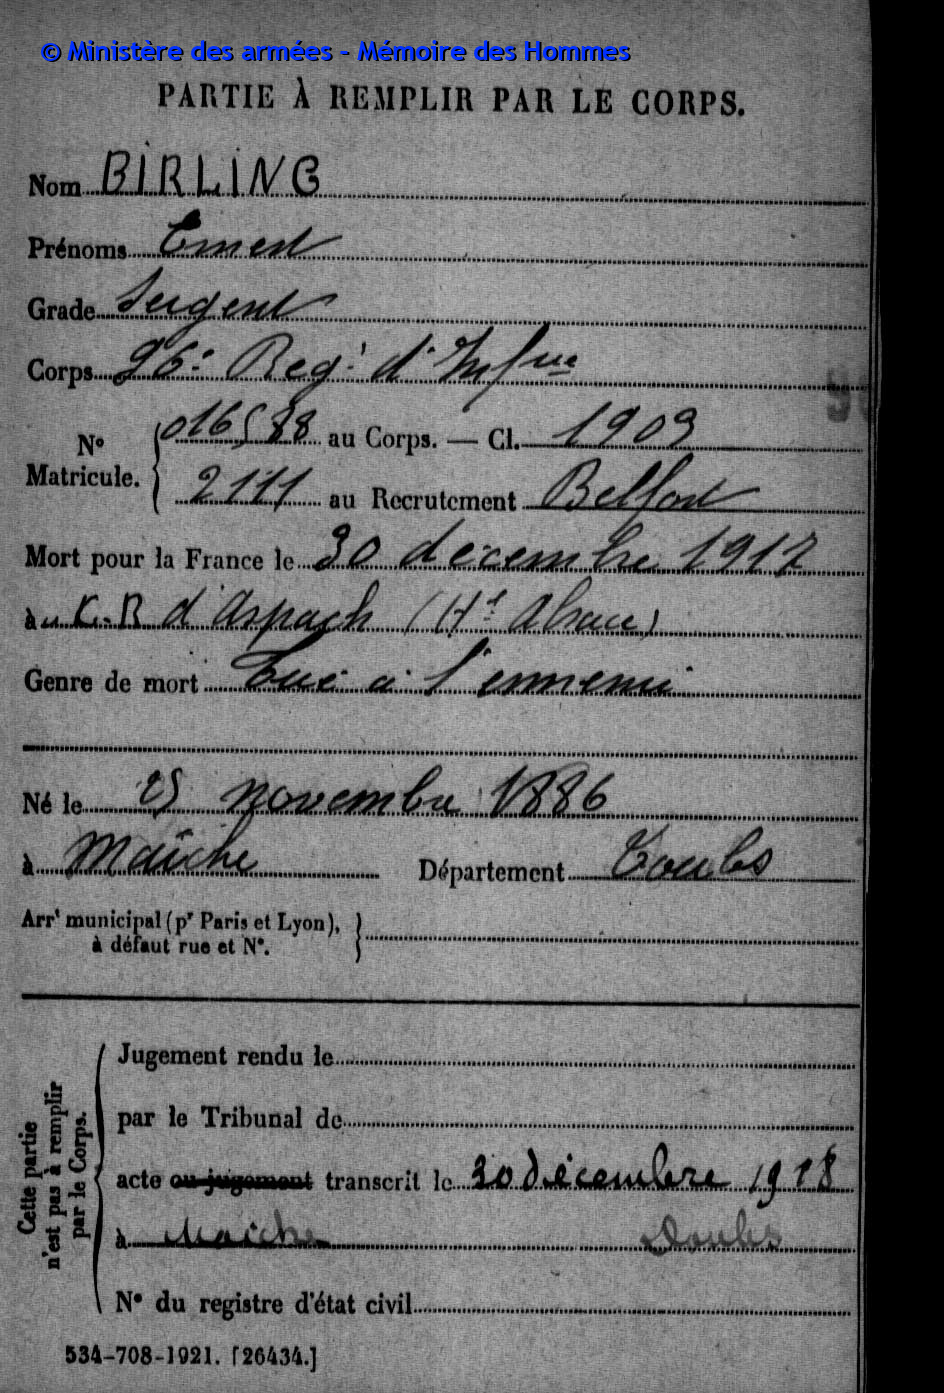 © Ministère des armées - Mémoire des Hommes
PARTIE À REMPLIR PAR LE CORPS.
Nom BIRLING
Prénoms Ernest
Grade Sergent
Corps 96e Regt d'Infrie
No Matricule. 016588 au Corps. — Cl. 1909
2111 au Recrutement Belfort
Mort pour la France le 30 décembre 1917
à d'Aspach (Hte Alsace)
Genre de mort Tué à l'ennemi
Né le 25 novembre 1886
à Maîche Département Doubs
Arrt municipal (pr Paris et Lyon),
à défaut rue et No.
Cette partie n'est pas à remplir par le Corps.
Jugement rendu le
par le Tribunal de
acte ou jugement transcrit le 30 décembre 1918
à Maiche Doubs
No du registre d'état civil
534-708-1921. [26434.]